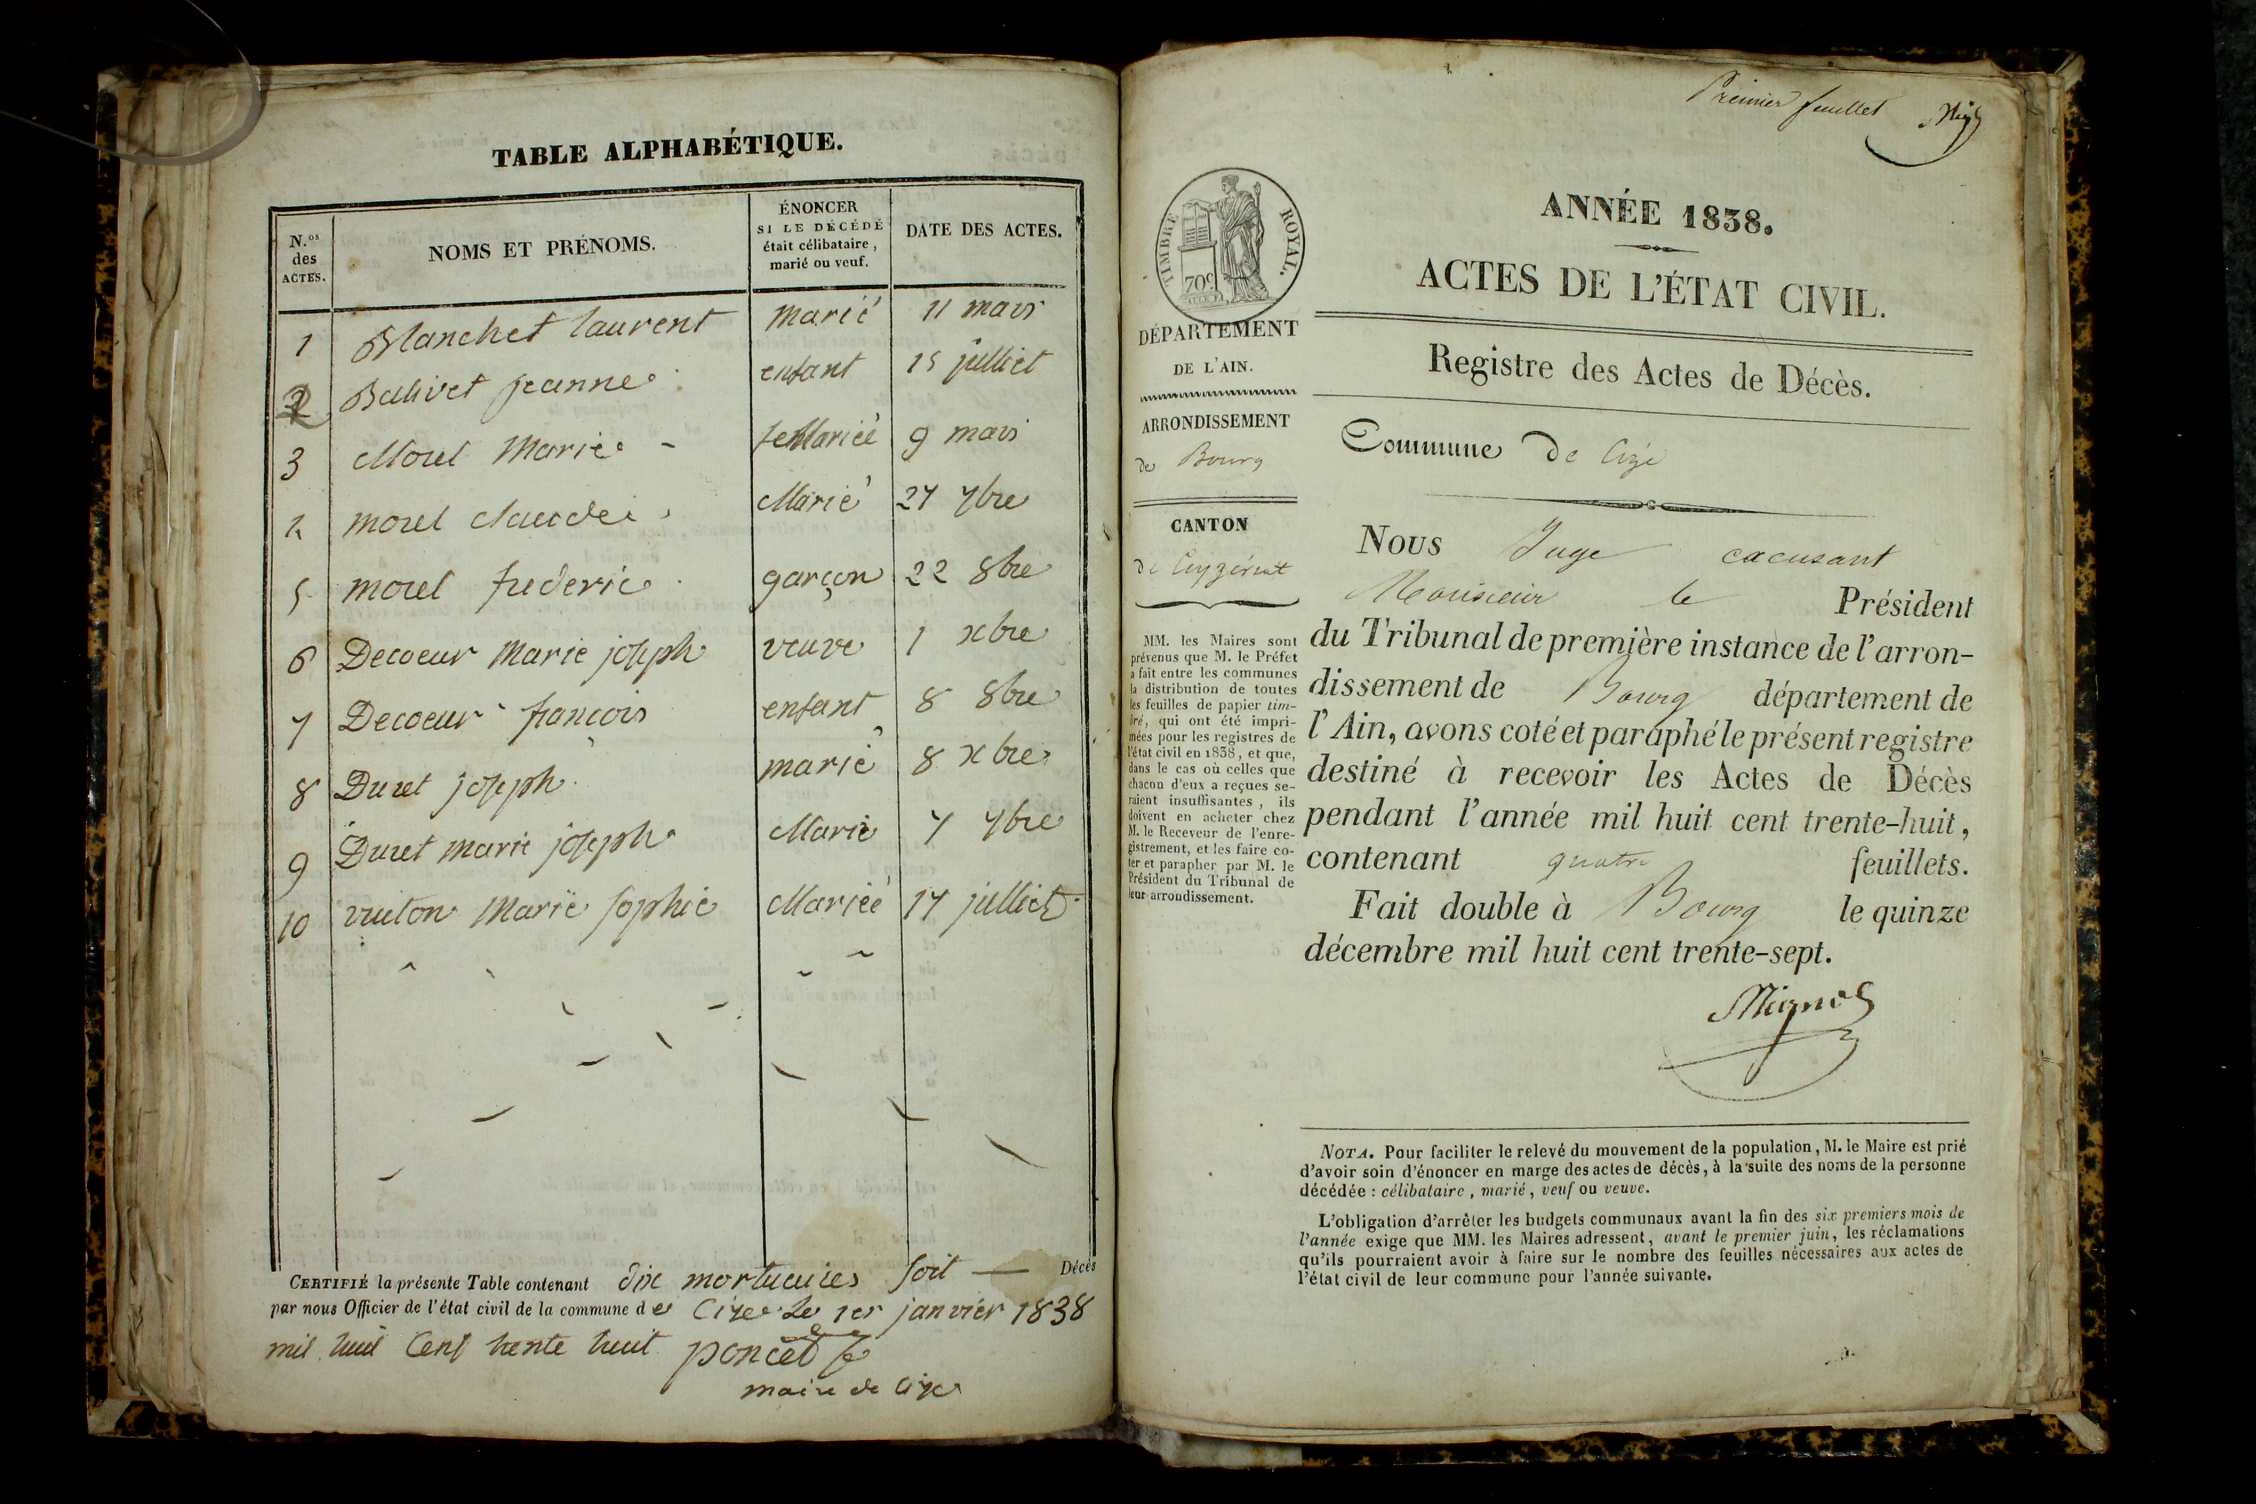 TABLE ALPHABÉTIQUE.
N.os des ACTES.
NOMS ET PRÉNOMS.
ÉNONCER
SI LE DÉCÉDÉ
était célibataire,
marié ou veuf.
DATE DES ACTES.
1 Blanchet laurent marié 11 mars
2 Balivet jeanne enfant 15 julliet
3 Morel Marie - Mariée 9 mars
4 morel claude Marié 27 7bre
5 morel frederic garçon 22 8bre
6 Decoeur Marie joseph veuve 1 xbre
7 Decoeur françois enfant 8 8bre
8 Duret joseph marié 8 xbre
9 Duret marie joseph Marié 7 7bre
10 vuiton Marie sophie Mariéé 17 julliet
CERTIFIÉ la présente Table contenant dix mortuaires soit — Décès
par nous Officier de l'état civil de la commune de Cize Le 1er janvier 1838
mil huit Cent trente huit poncet
maire de Cize
Premier feuillet
TIMBRE ROYAL.
70c
DÉPARTEMENT
DE L'AIN.
ARRONDISSEMENT
de Bourg
CANTON
de Ceyzériat
MM. les Maires sont
prévenus que M. le Préfet
a fait entre les communes
la distribution de toutes
les feuilles de papier tim-
bré, qui ont été impri-
mées pour les registres de
l'état civil en 1838, et que,
dans le cas où celles que
chacun d'eux a reçues se-
raient insuffisantes, ils
doivent en acheter chez
M. le Receveur de l'enre-
gistrement, et les faire co-
ter et parapher par M. le
Président du Tribunal de
leur arrondissement.
ANNÉE 1838.
ACTES DE L'ÉTAT CIVIL.
Registre des Actes de Décès.
Commune de Cize
Nous Juge excusant
Monsieur le Président
du Tribunal de première instance de l'arron-
dissement de Bourg département de
l'Ain, avons coté et paraphé le présent registre
destiné à recevoir les Actes de Décès
pendant l'année mil huit cent trente-huit,
contenant quatre feuillets.
Fait double à Bourg le quinze
décembre mil huit cent trente-sept.
NOTA. Pour faciliter le relevé du mouvement de la population, M. le Maire est prié
d'avoir soin d'énoncer en marge des actes de décès, à la suite des noms de la personne
décédée : célibataire, marié, veuf ou veuve.
L'obligation d'arrêter les budgets communaux avant la fin des six premiers mois de
l'année exige que MM. les Maires adressent, avant le premier juin, les réclamations
qu'ils pourraient avoir à faire sur le nombre des feuilles nécessaires aux actes de
l'état civil de leur commune pour l'année suivante.